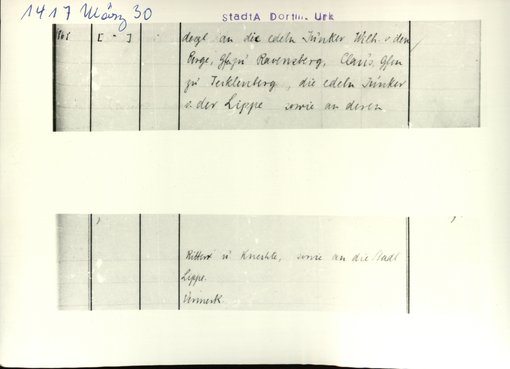 1417 März 30
StadtA Dortm. Urk
[ - ] desgl. an die edeln Junker Wilh. v. dem
Berge, Gf. zu Ravensberg, Claus, Gfen
zu Tecklenberg, die edeln Junker
v. der Lippe sowie an deren
Ritter u. Knechte, sowie an die Stadt
Lippe.
Vermerk.